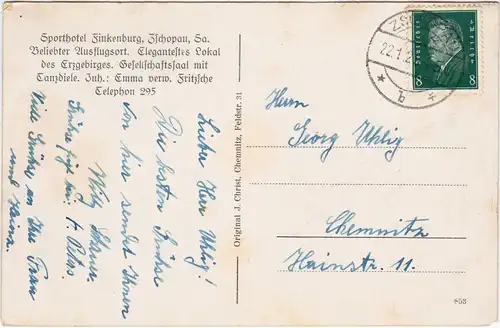 Sporthotel Finkenburg, Zschopau, Sa.
Beliebter Ausflugsort. Elegantestes Lokal
des Erzgebirges. Gesellschaftssaal mit
Tanzdiele. Inh.: Emma verw. Fritzsche
Telephon 295
Lieber Herr Uhlig!
Die besten Grüße
von hier sendet Ihnen
Willy
Viele Grüße an Ihre Frau
und Heinz.
Original J. Christ, Chemnitz, Feldstr. 31
Deutsches Reich
8 8
22.1.2
* b *
Herrn
Georg Uhlig
Chemnitz
Hainstr. 11.
853